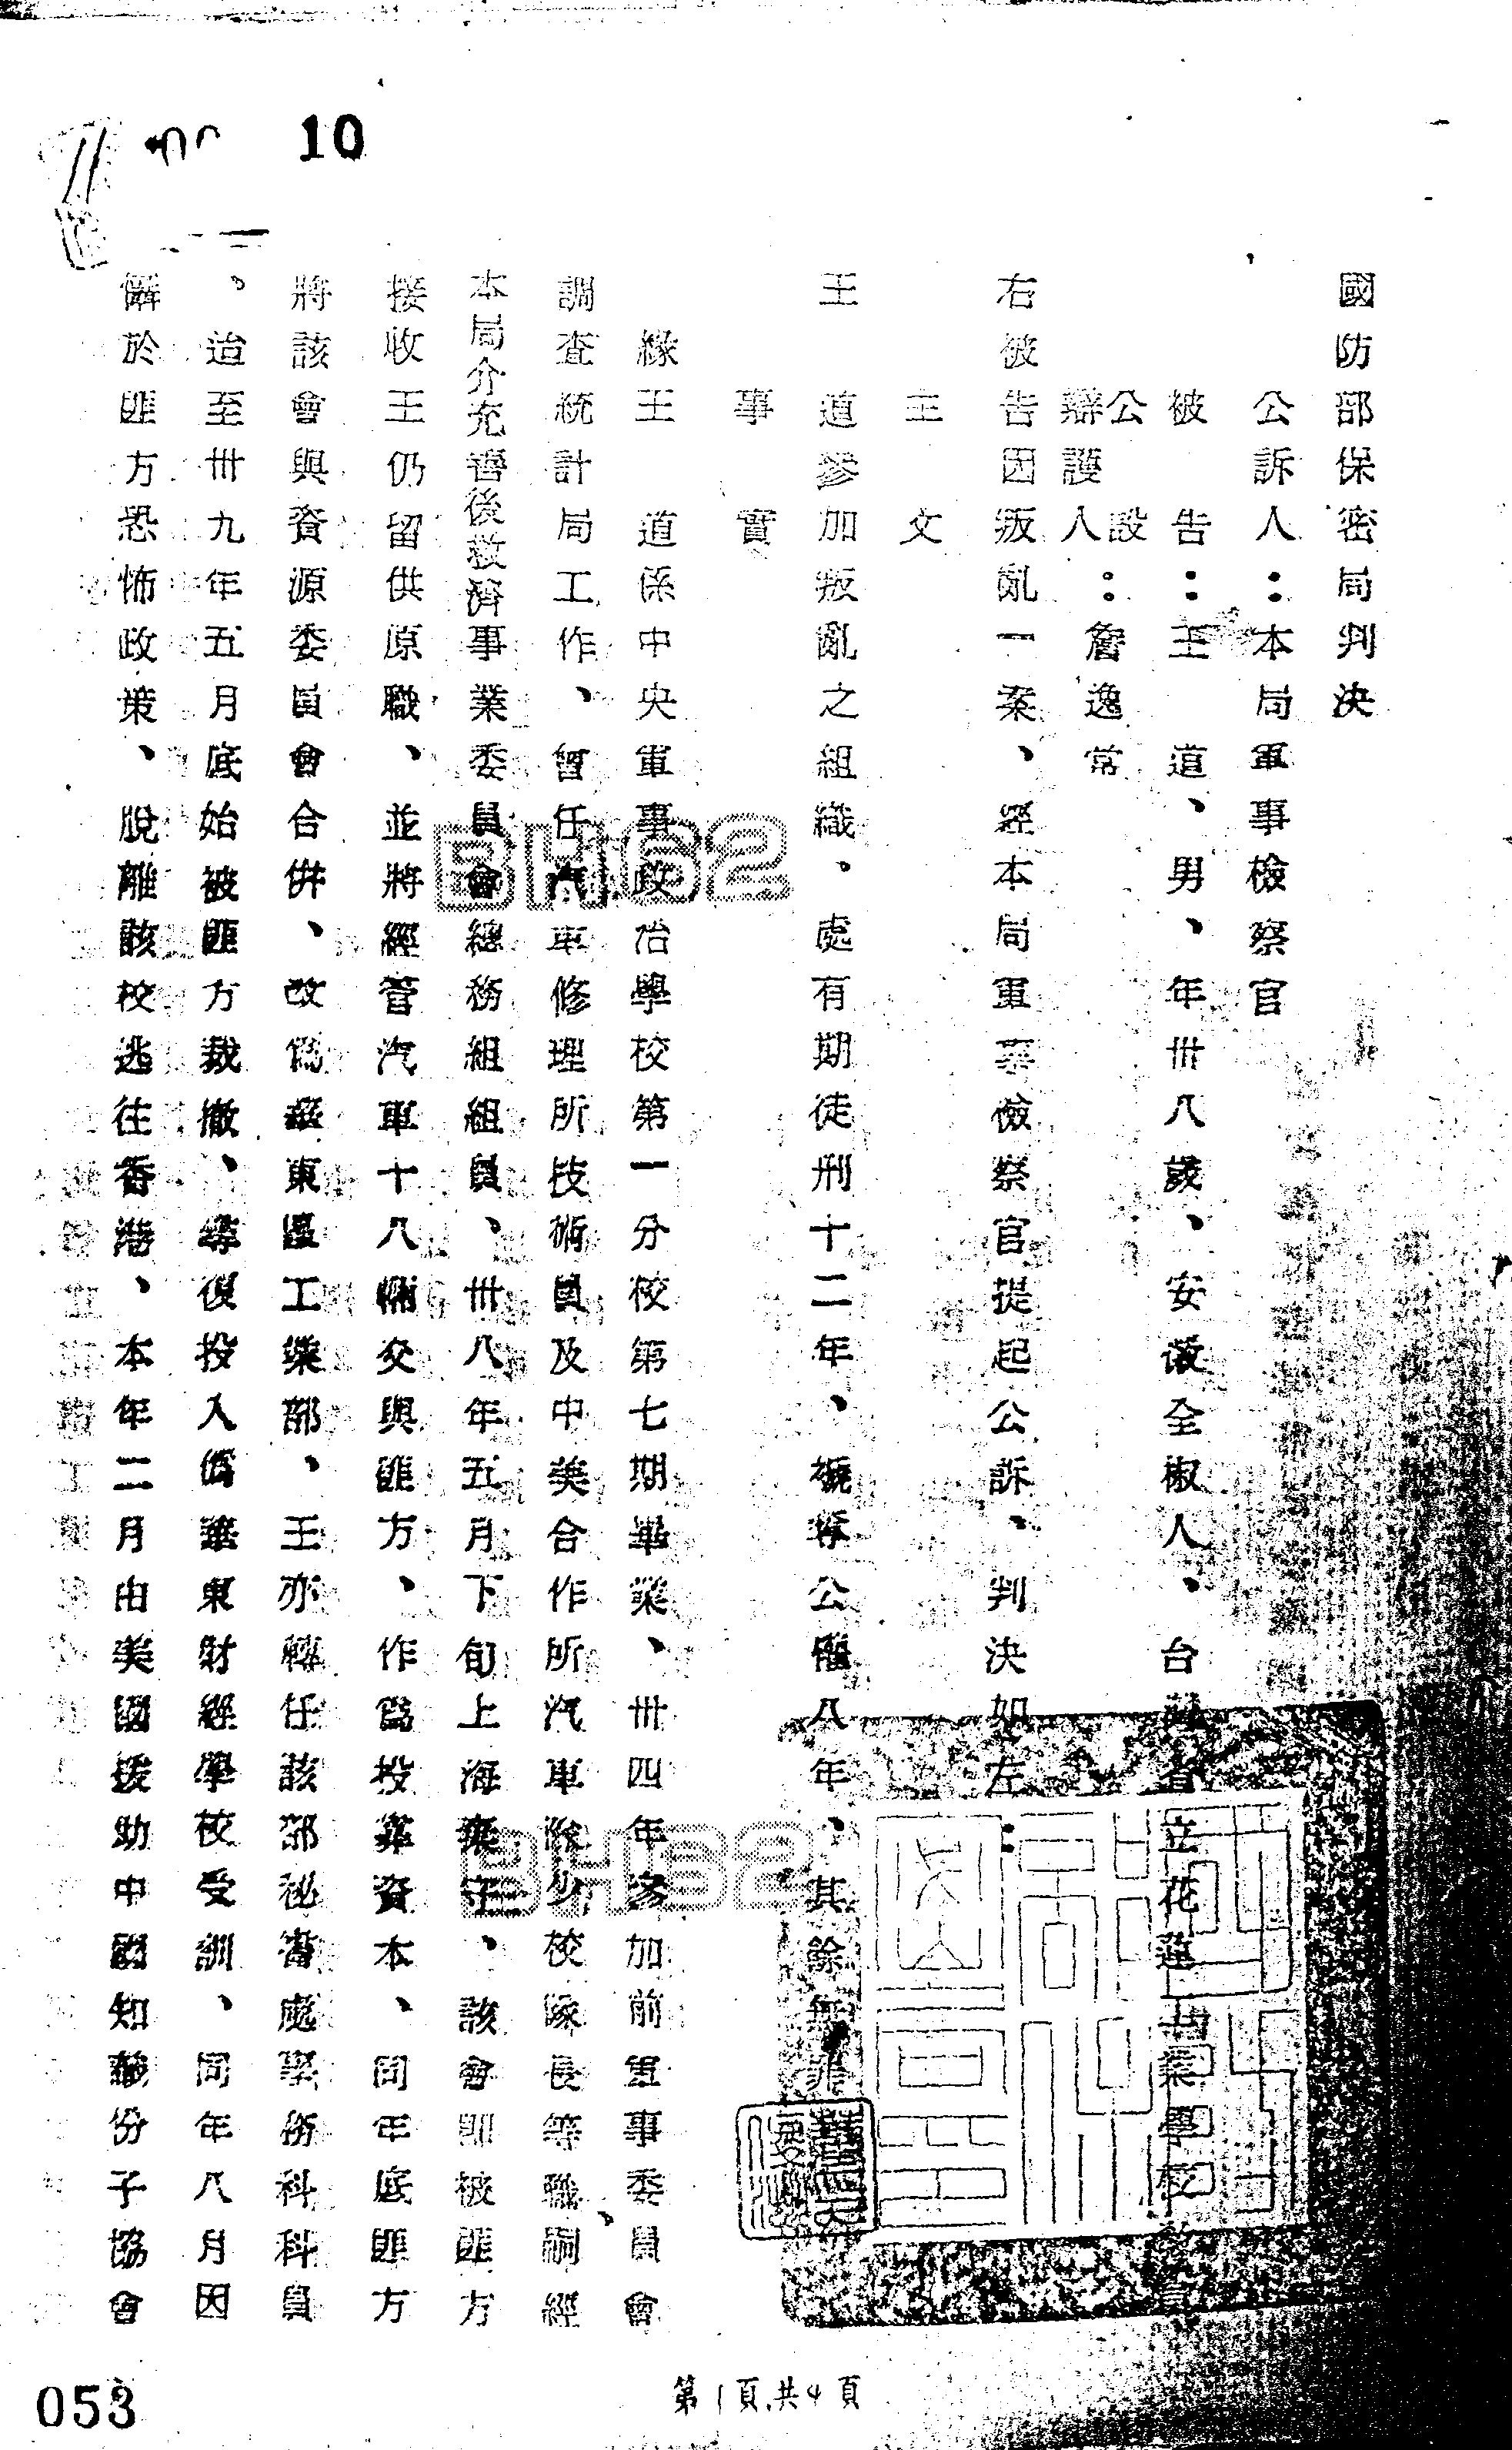 10
國防部保密局判決
公訴人：本局軍事檢察官
被告：王 道、男、年卅八歲、安徽全椒人、台灣省立花蓮工業學校教員
公設辯護人：詹逸常
右被告因叛亂一案、經本局軍事檢察官提起公訴、判決如左：
主 文
王 道參加叛亂之組織、處有期徒刑十二年、褫奪公權八年、其餘無罪
事 實
緣王 道係中央軍事政治學校第一分校第七期畢業、卅四年參加前軍事委員會
調查統計局工作、暫任汽車修理所技術員及中美合作所汽車隊少校隊長等職、嗣經
本局介充善後救濟事業委員會總務組組員、卅八年五月下旬上海棄守、該會即被匪方
接收王仍留供原職、並將經管汽車十八輛交與匪方、作為投靠資本、同年底匪方
將該會與資源委員會合併、改為華東區工業部、王亦轉任該部祕書處學術科科員
、迨至卅九年五月底始被匪方裁撤、尋復投入偽華東財經學校受訓、同年八月因
懈於匪方恐怖政策、脫離該校逃往香港、本年二月由美國援助中國知識份子協會
BH62
BH62
第1頁,共4頁
053